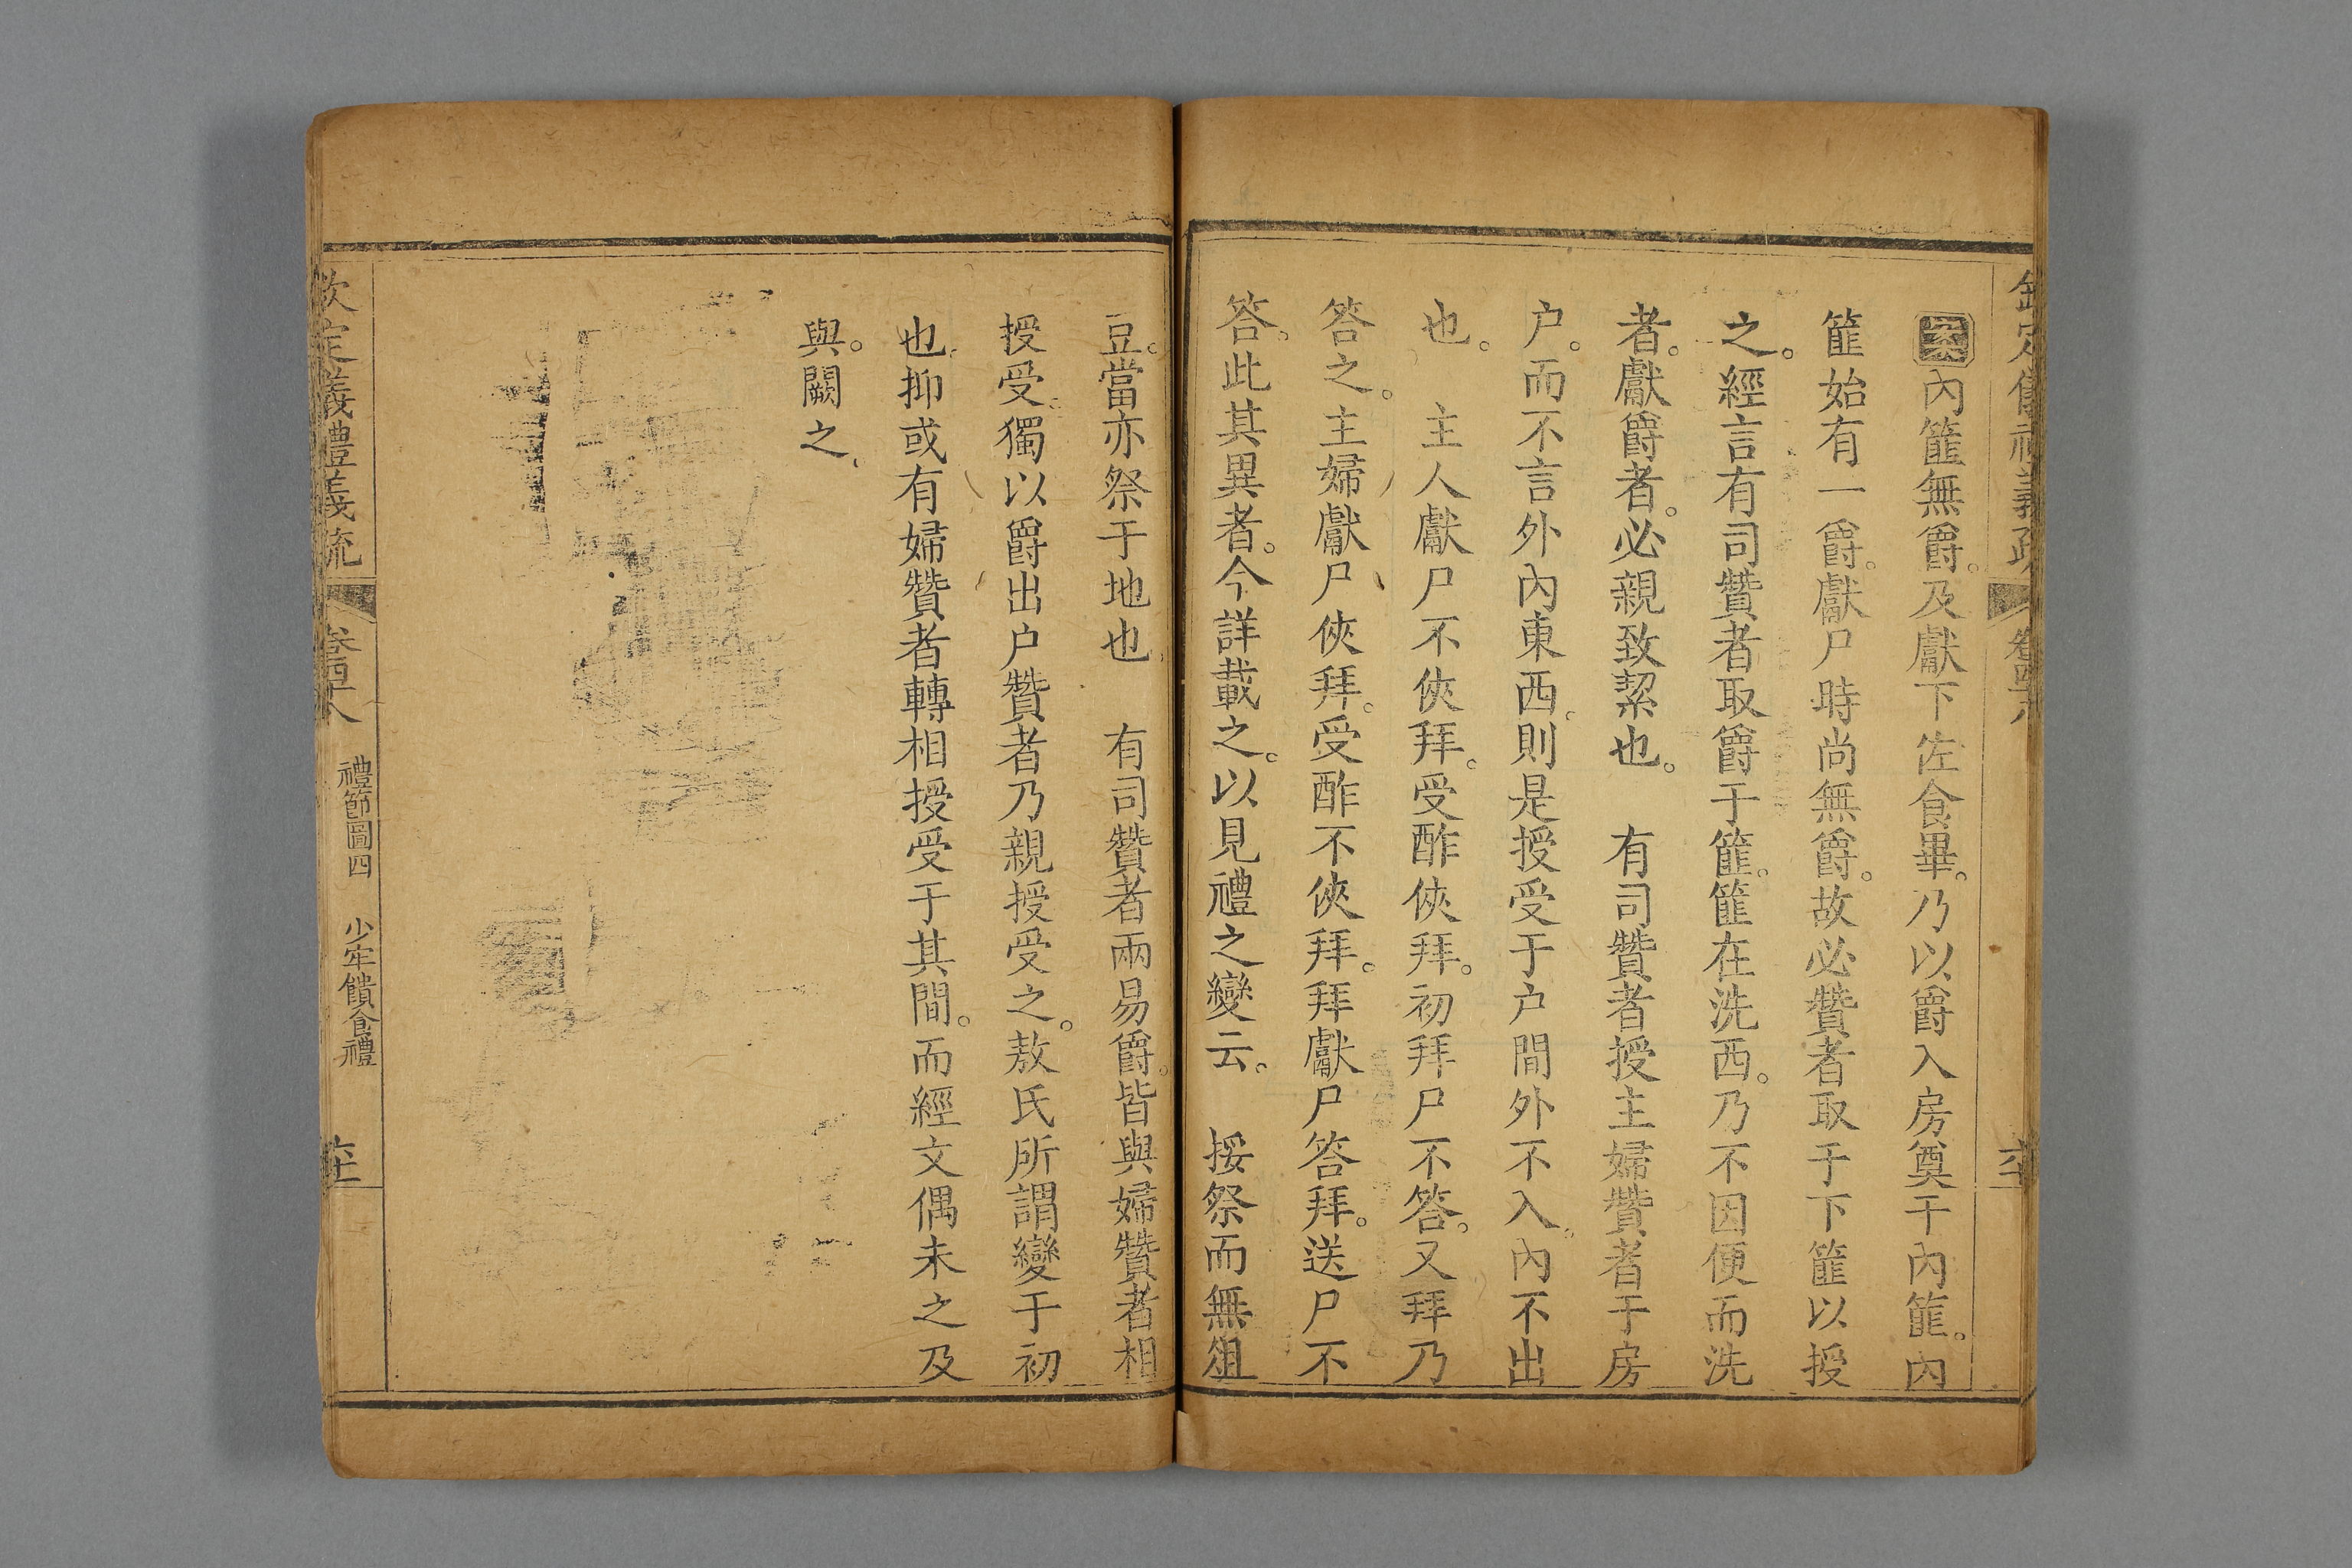 欽定儀禮義疏 卷四十八 六十
案內篚無爵。及獻下佐食畢。乃以爵入房奠于內篚。內
篚始有一爵。獻尸時尚無爵。故必贊者取于下篚以授
之。經言有司贊者取爵于篚。篚在洗西。乃不因便而洗
者。獻爵者。必親致絜也。 有司贊者授主婦贊者于房
户。而不言外內東西。則是授受于户間外不入。內不出
也。 主人獻尸不俠拜。受酢俠拜。初拜尸不答。又拜乃
答之。主婦獻尸俠拜。受酢不俠拜。拜獻尸答拜。送尸不
答。此其異者。今詳載之。以見禮之變云。 挼祭而無俎
豆。當亦祭于地也 有司贊者兩易爵。皆與婦贊者相
授受。獨以爵出户贊者乃親授受之。敖氏所謂變于初
也。抑或有婦贊者轉相授受于其間。而經文偶未之及
與。闕之
欽定義禮義疏 卷四十八 禮節圖四 少牢饋食禮